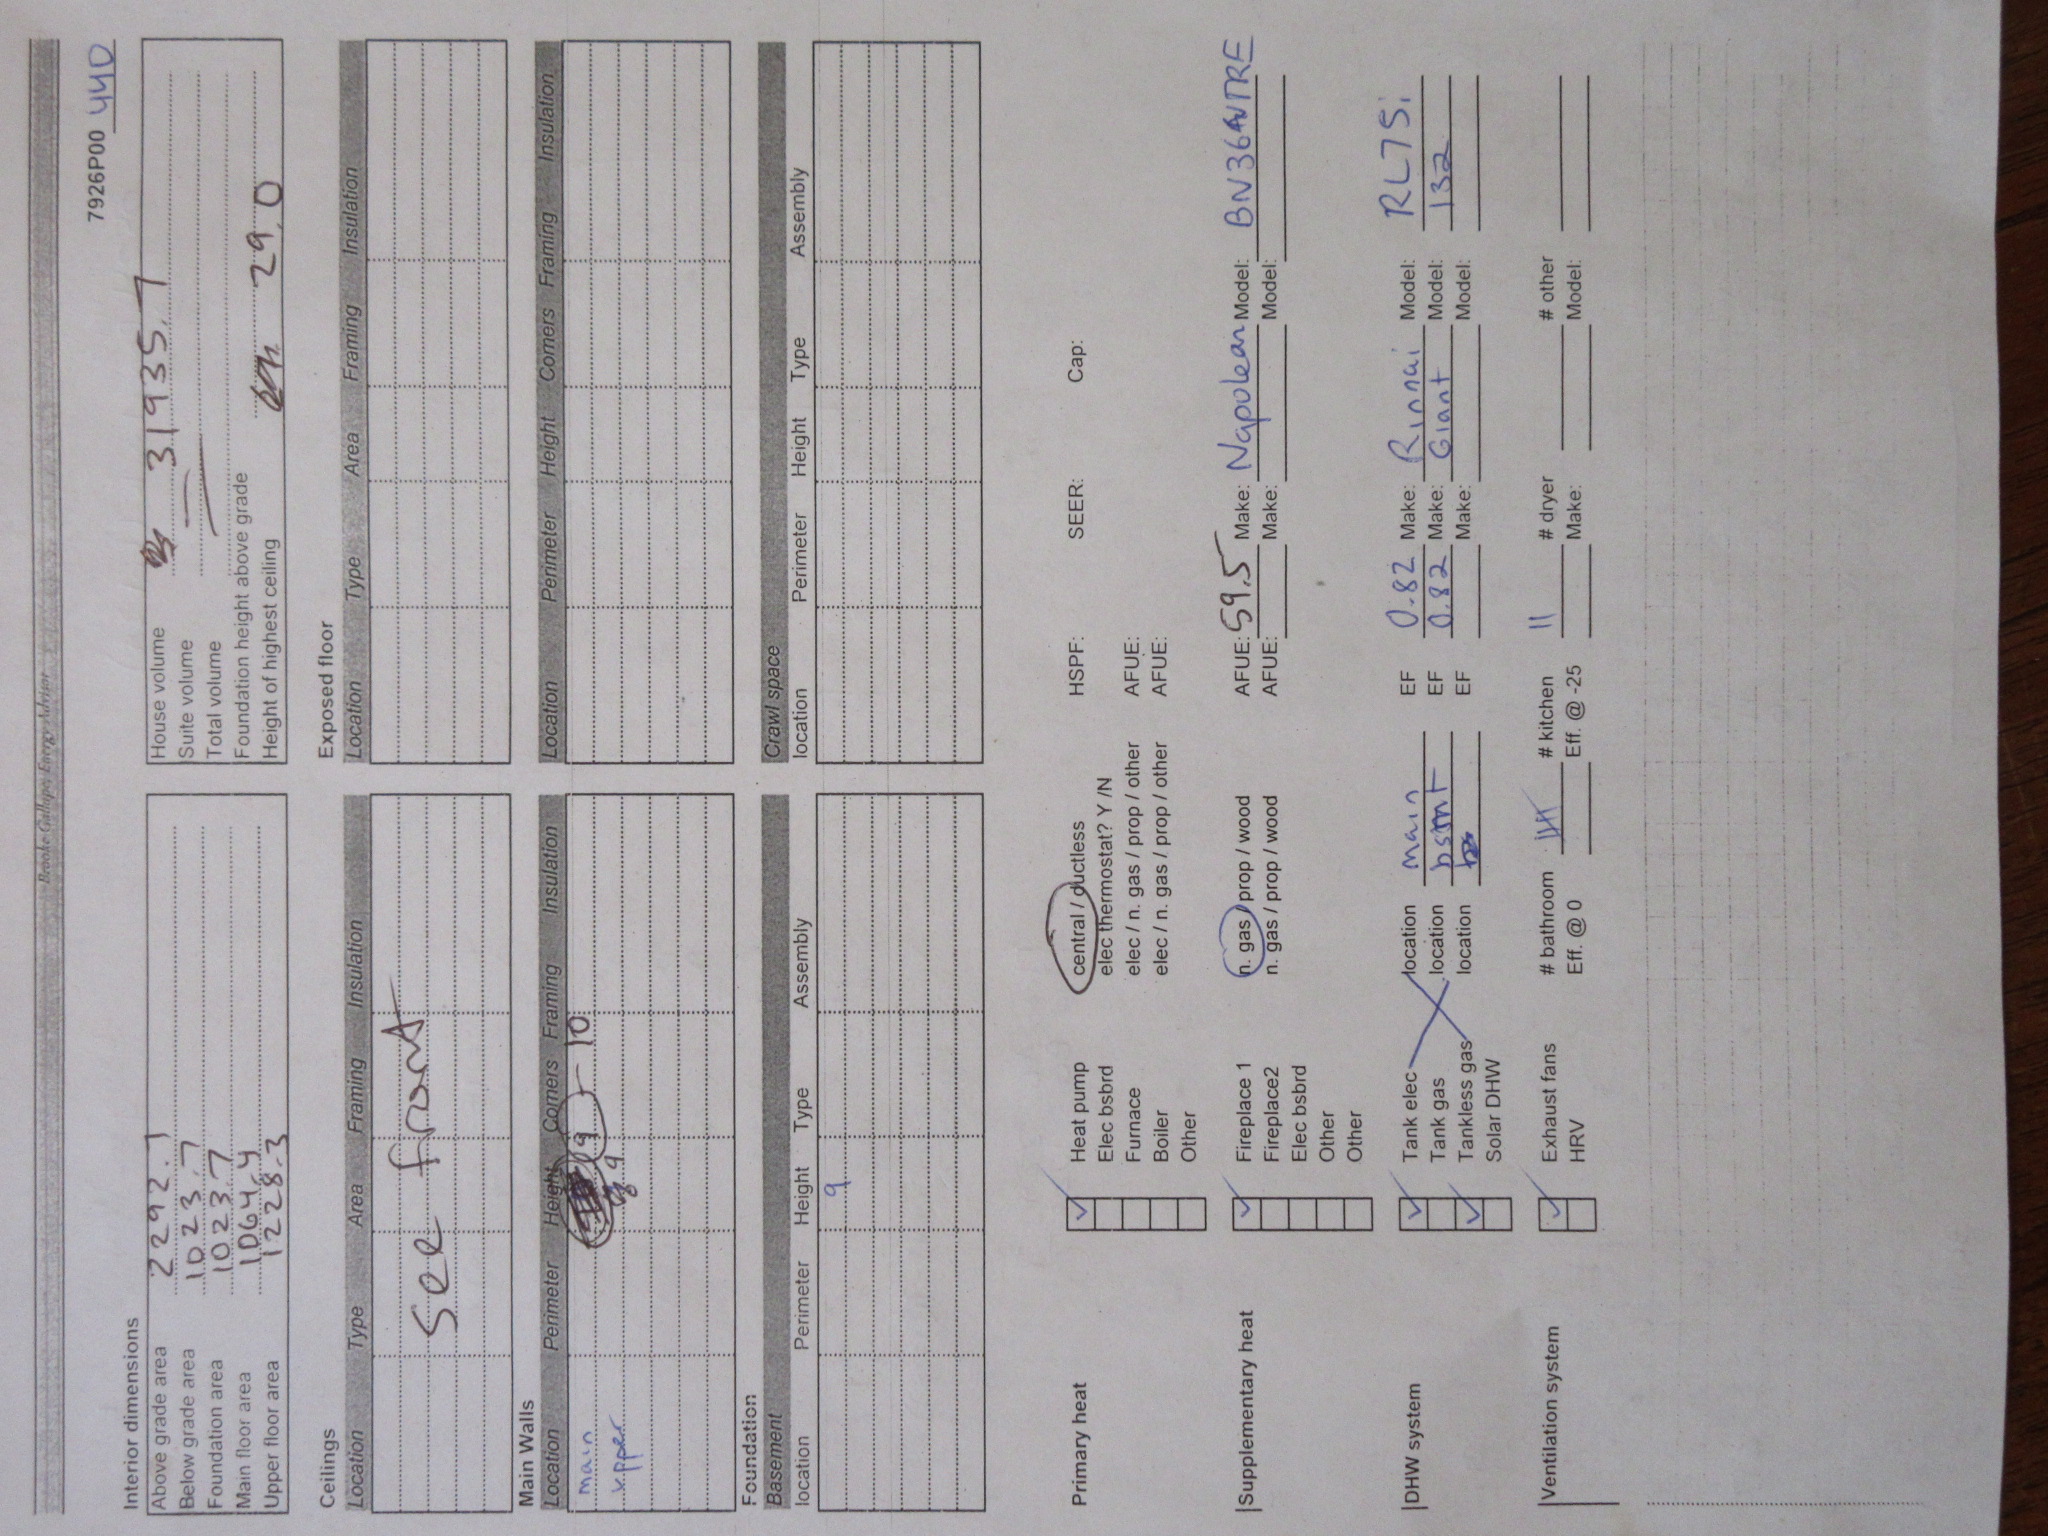 Brooke Gallups Energy Advisor
7926P00 440
Interior dimensions
Above grade area 2292.7
Below grade area 1023.7
Foundation area 1023.7
Main floor area 1064.4
Upper floor area 1228.3
House volume 31935.7
Suite volume —
Total volume —
Foundation height above grade
Height of highest ceiling 29.0
Ceilings
Location Type Area Framing Insulation
See front
Exposed floor
Location Type Area Framing Insulation
Main Walls
Location Perimeter Height Corners Framing Insulation
main 9 10
upper 9
Location Perimeter Height Corners Framing Insulation
Foundation
Basement
location Perimeter Height Type Assembly
9
Crawl space
location Perimeter Height Type Assembly
Primary heat
Heat pump central / ductless HSPF: SEER: Cap:
Elec bsbrd elec thermostat? Y /N
Furnace elec / n. gas / prop / other AFUE:
Boiler elec / n. gas / prop / other AFUE:
Other
Supplementary heat
Fireplace 1 n. gas / prop / wood AFUE: 59.5 Make: Napolean Model: BN36NTRE
Fireplace2 n. gas / prop / wood AFUE: Make: Model:
Elec bsbrd
Other
Other
DHW system
Tank elec location main EF 0.82 Make: Rinnai Model: RL75i
Tank gas location bsmt EF 0.82 Make: Giant Model: 132
Tankless gas location EF Make: Model:
Solar DHW
Ventilation system
Exhaust fans # bathroom # kitchen 11 # dryer # other
HRV Eff. @ 0 Eff. @ -25 Make: Model: